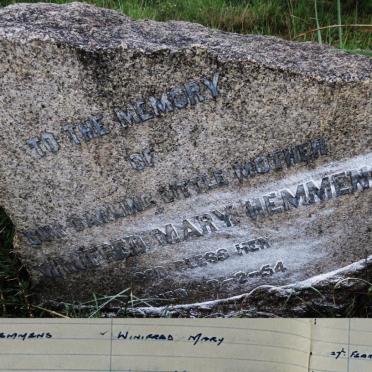 TO THE MEMORY
OF
OUR DARLING LITTLE MOTHER
WINIFRED MARY HEMMEN
GOD BLESS HER
54
EMMENS ✓ WINIFRED MARY